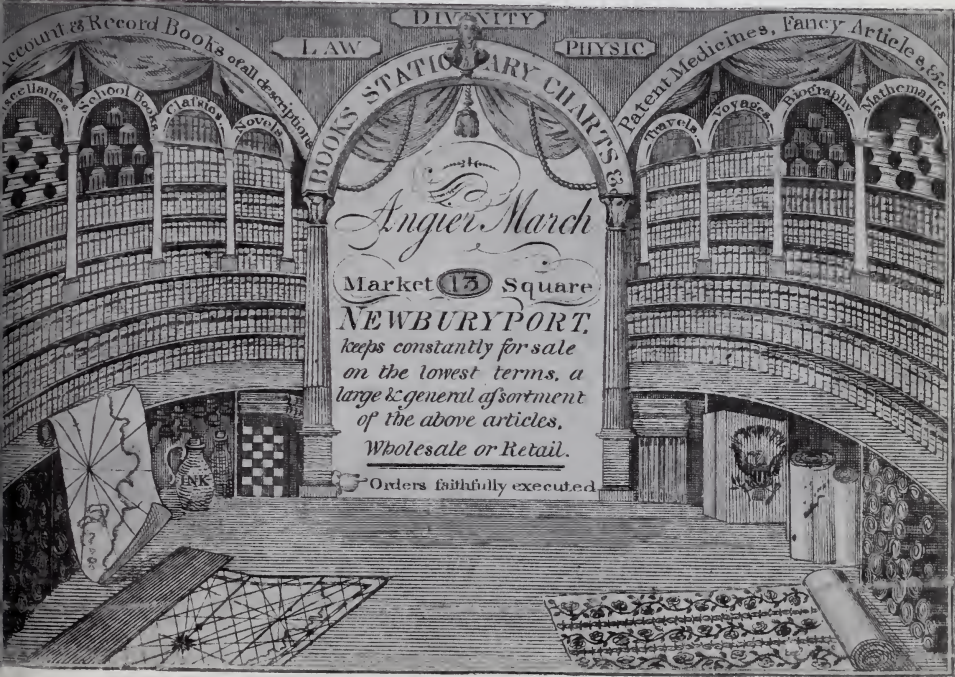 DIVINITY
LAW
PHYSIC
Account & Record Books of all descriptions
BOOKS STATIONARY CHARTS &
Patent Medicines, Fancy Articles, &c.
Miscellanies,
School Books,
Classics,
Novels,
Travels,
Voyages,
Biography,
Mathematics,
Angier March
Market 13 Square
NEWBURYPORT,
keeps constantly for sale
on the lowest terms, a
large & general aſsortment
of the above articles,
Wholesale or Retail.
Orders faithfully executed
INK